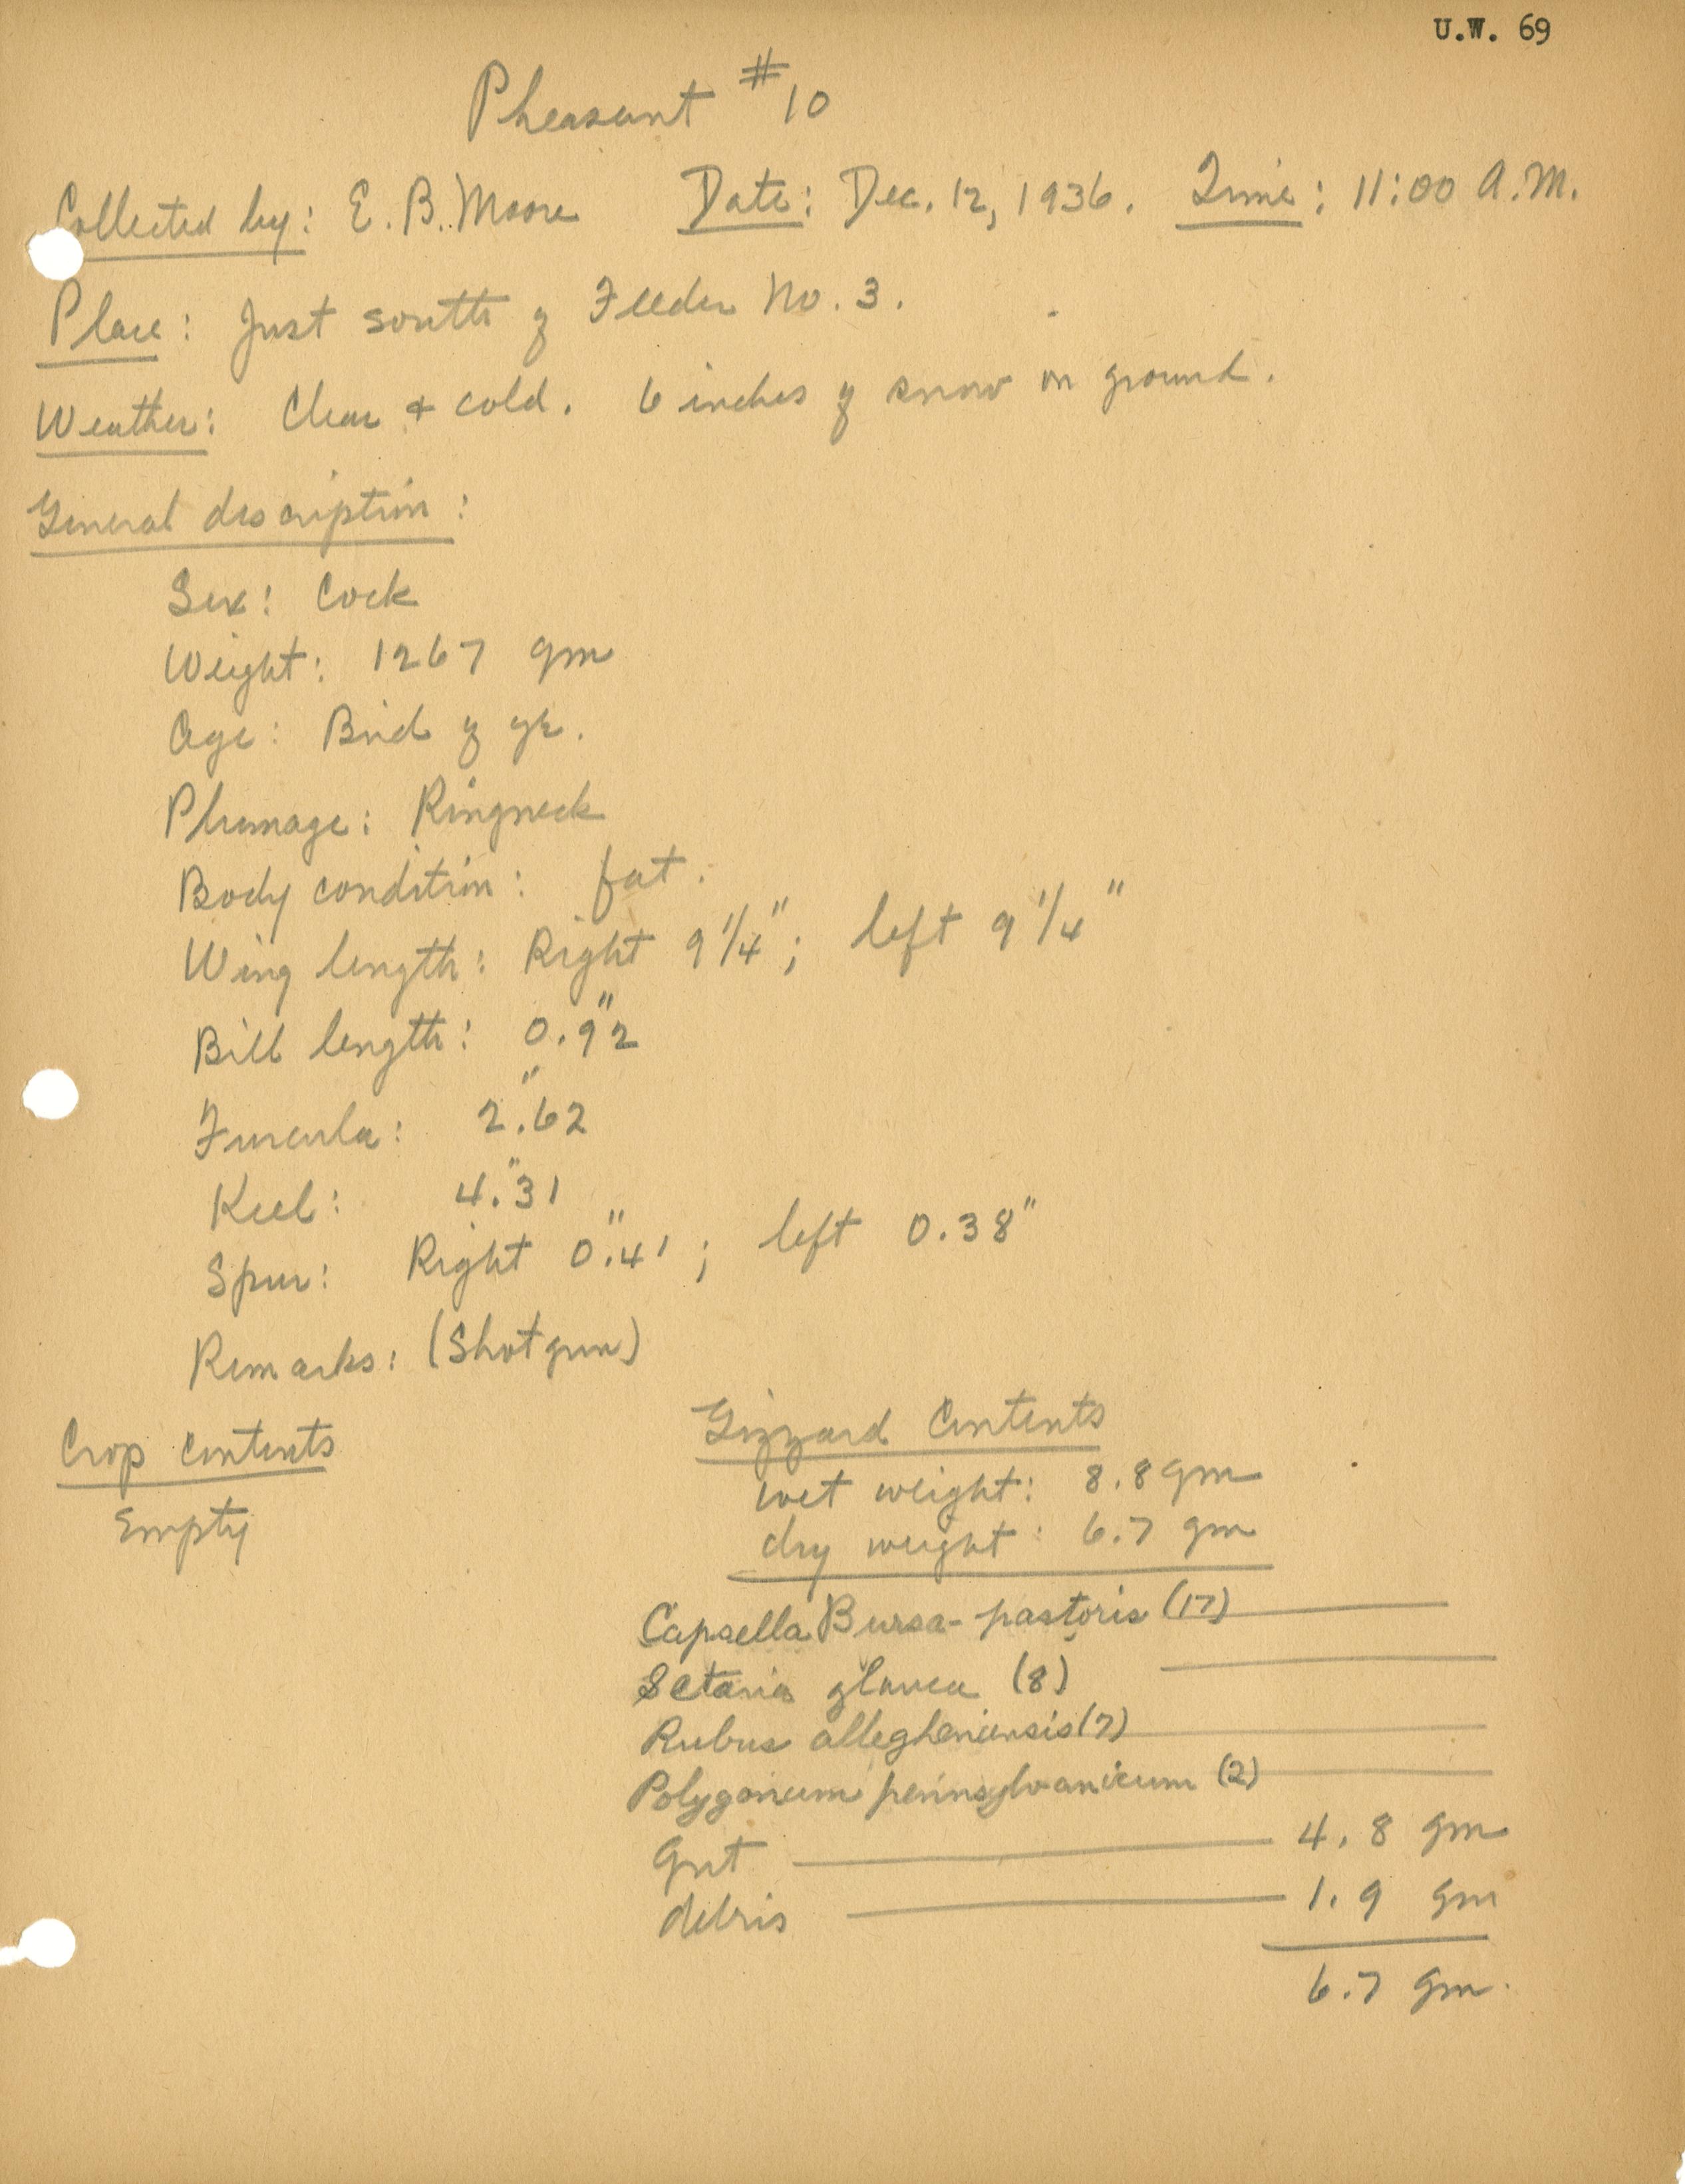 U.W. 69
Pheasant #10
Collected by: E. B. Moore Date: Dec. 12, 1936. Time: 11:00 A.M.
Place: Just south of Feeder No. 3.
Weather: Clear & cold. 6 inches of snow on ground.
General description:
Sex: Cock
Weight: 1267 gm
Age: Bird of yr.
Plumage: Ringneck
Body condition: fat.
Wing length: Right 9 1/4"; left 9 1/4"
Bill length: 0."92
Furcula: 2."62
Keel: 4."31
Spur: Right 0."41; left 0.38"
Remarks: (Shotgun)
Crop contents
Empty
Gizzard Contents
wet weight: 8.8 gm
dry weight: 6.7 gm
Capsella Bursa-pastoris (17)
Setaria glauca (8)
Rubus allegheniensis (7)
Polygonum pennsylvanicum (2)
Grit 4.8 gm
debris 1.9 gm
6.7 gm.